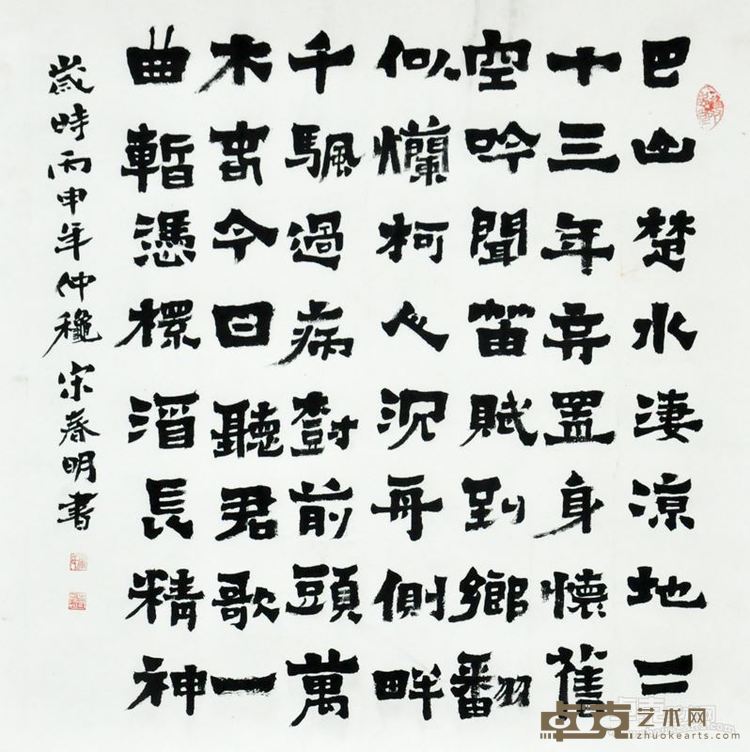 巴山楚水淒涼地二
十三年弃置身懷舊
空吟聞笛賦到鄉翻
似爛柯人沉舟側畔
千颿過病樹前頭萬
木春今日聽君歌一
曲暫憑桮酒長精神
歲時丙申年仲穐宋春明書
卓克艺术网
zhuokearts.com